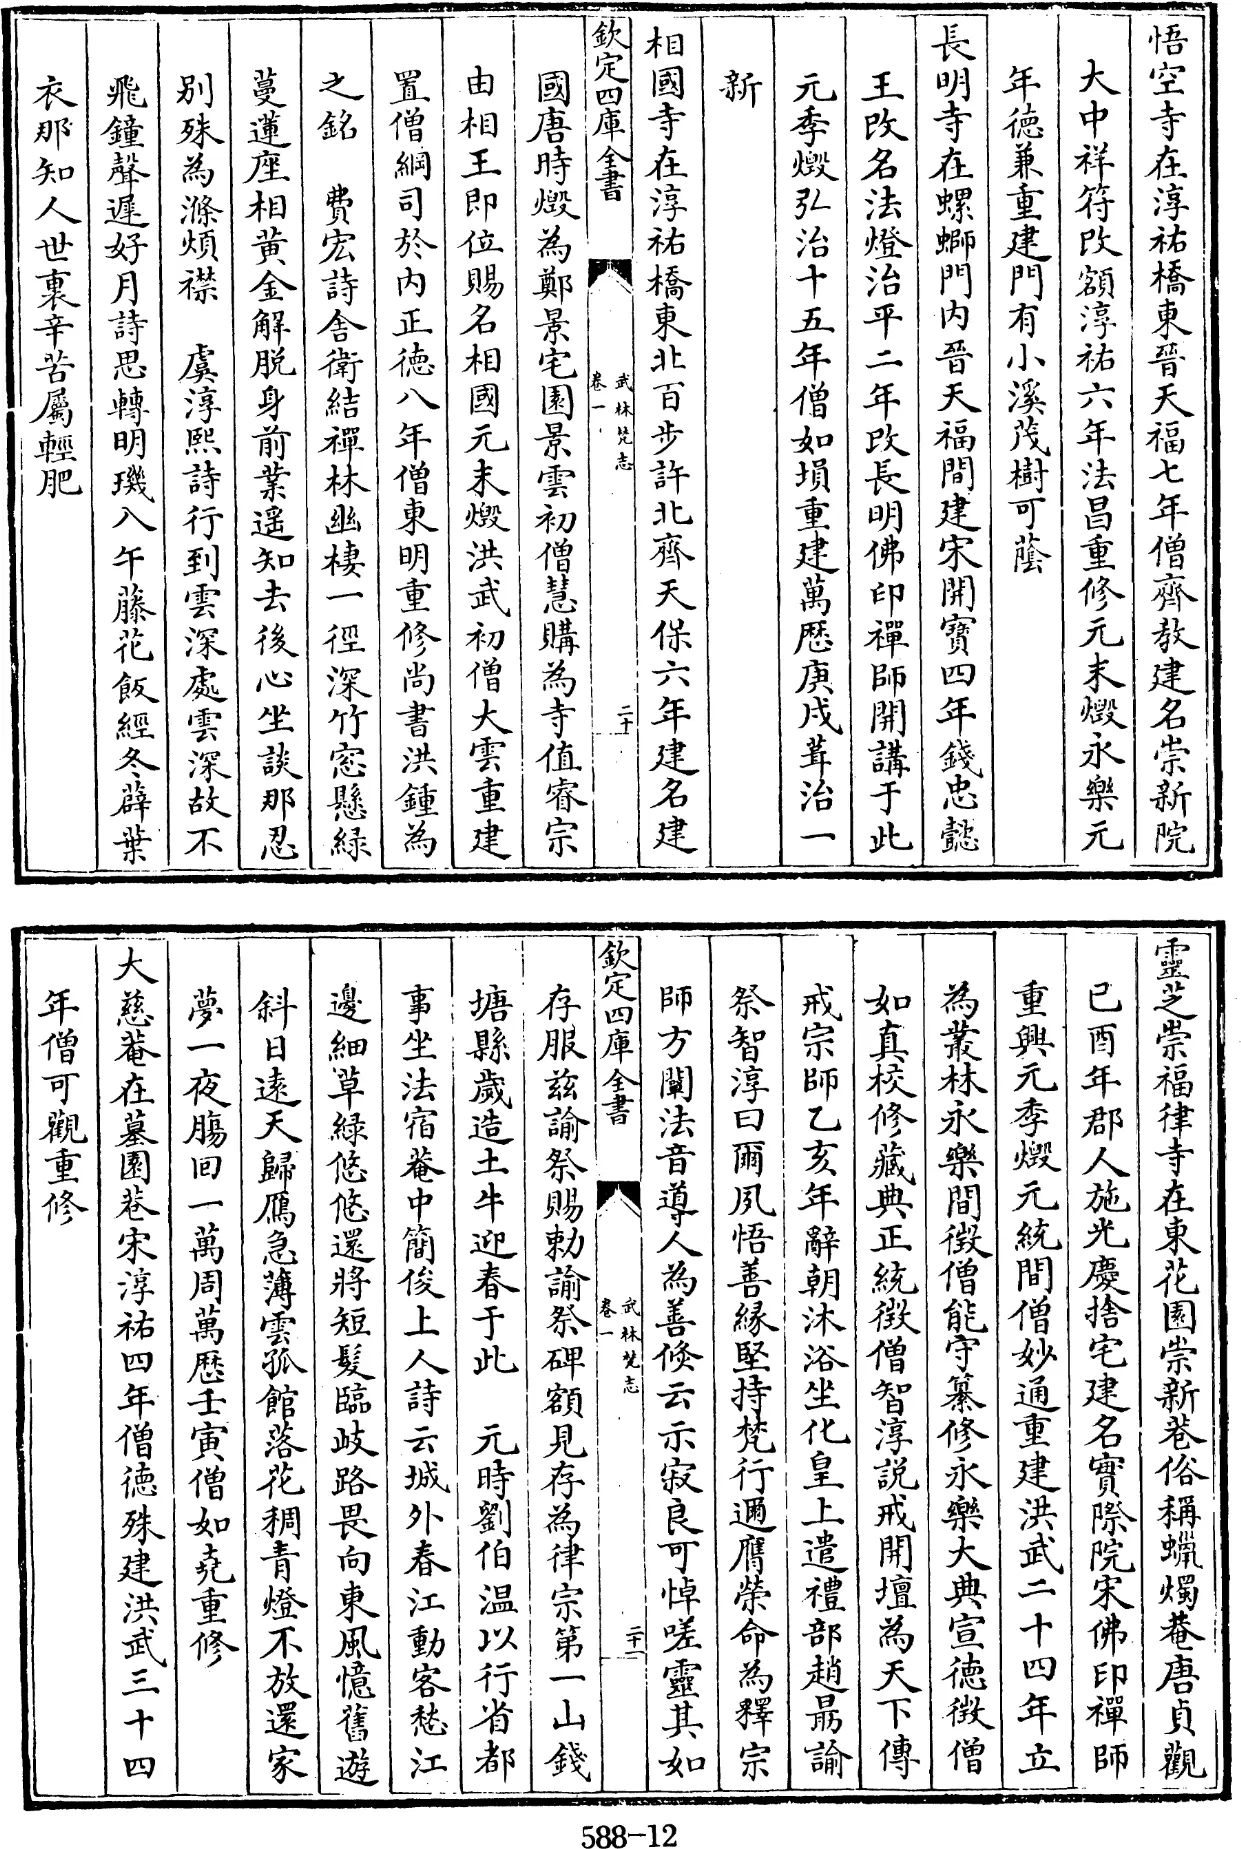 悟空寺在淳祐橋東晉天福七年僧齊教建名崇新院
大中祥符改額淳祐六年法昌重修元末燬永樂元
年德兼重建門有小溪茂樹可蔭
長明寺在螺螄門内晉天福間建宋開寶四年錢忠懿
王改名法燈治平二年改長明佛印禪師開講于此
元季燬弘治十五年僧如塤重建萬歷庚戌葺治一
新
相國寺在淳祐橋東北百步許北齊天保六年建名建
欽定四庫全書
武林梵志
卷一
二十
國唐時燬為鄭景宅園景雲初僧慧購為寺值睿宗
由相王即位賜名相國元末燬洪武初僧大雲重建
置僧綱司於内正德八年僧東明重修尚書洪鍾為
之銘 費宏詩舍衛結禪林幽棲一徑深竹窓懸緑
蔓蓮座相黃金解脱身前業遥知去後心坐談那忍
别殊為滌煩襟 虞淳熙詩行到雲深處雲深故不
飛鐘聲遲好月詩思轉明璣八午藤花飯經冬薜葉
衣那知人世裏辛苦屬輕肥
靈芝崇福律寺在東花園崇新巷俗稱蠟燭菴唐貞觀
已酉年郡人施光慶捨宅建名實際院宋佛印禪師
重興元季燬元統間僧妙通重建洪武二十四年立
為叢林永樂間徴僧能守纂修永樂大典宣德徴僧
如真校修藏典正統徴僧智淳説戒開壇為天下傳
戒宗師乙亥年辭朝沐浴坐化皇上遣禮部趙勗諭
祭智淳曰爾夙悟善緣堅持梵行邇膺榮命為釋宗
師方闡法音導人為善倐云示寂良可悼嗟靈其如
欽定四庫全書
武林梵志
卷一
二十一
存服兹諭祭賜勅諭祭碑額見存為律宗第一山錢
塘縣歲造土牛迎春于此 元時劉伯溫以行省都
事坐法宿菴中簡俊上人詩云城外春江動客愁江
邊細草緑悠悠還將短髮臨岐路畏向東風憶舊遊
斜日遠天歸鴈急薄雲孤館落花稠青燈不放還家
夢一夜膓回一萬周萬歷壬寅僧如堯重修
大慈菴在墓園巷宋淳祐四年僧德殊建洪武三十四
年僧可觀重修
588-12